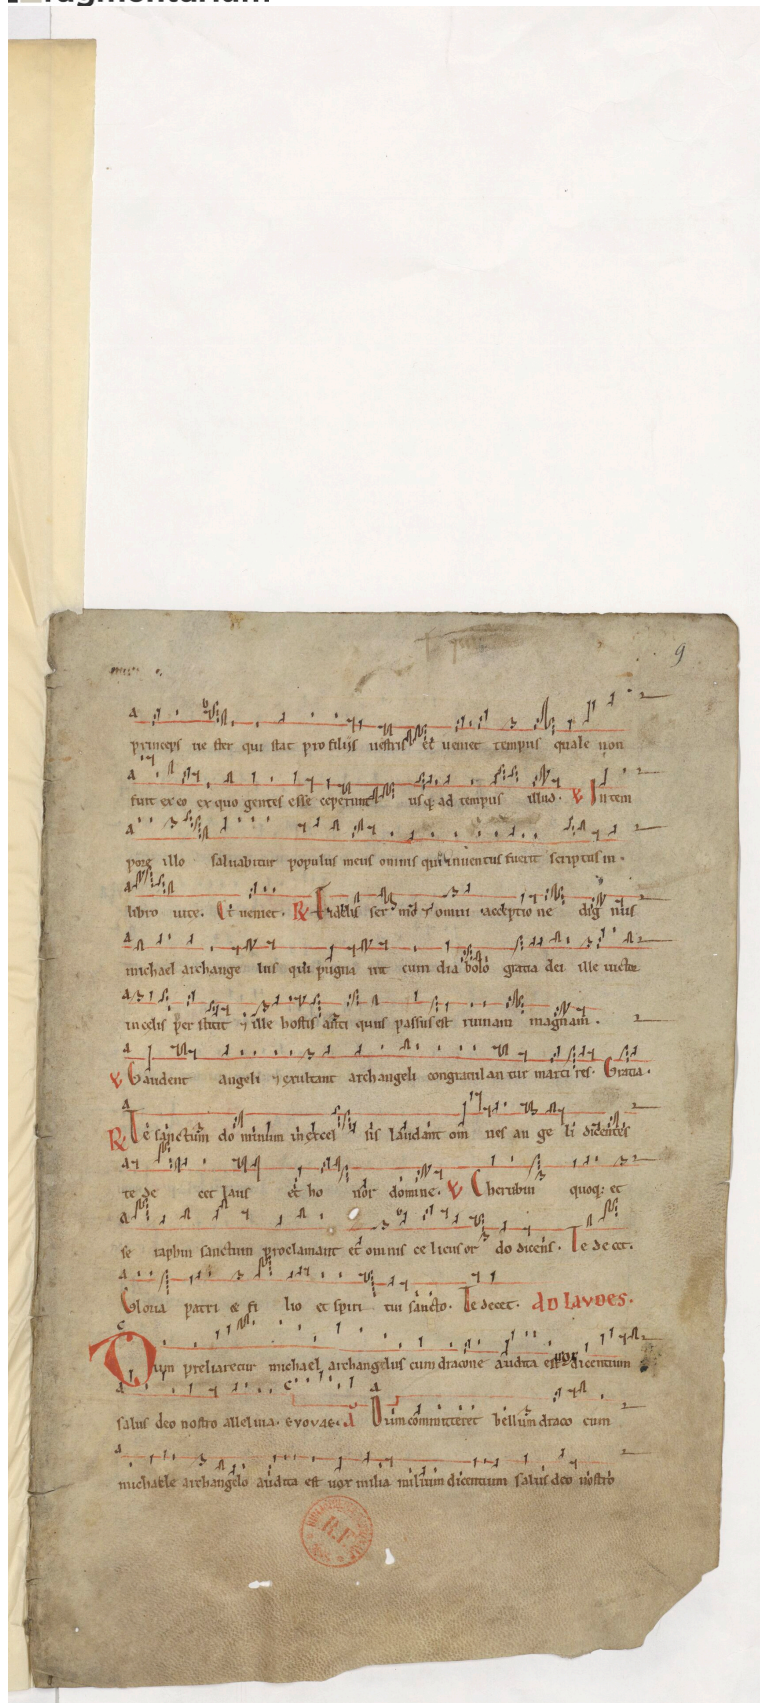 9
princeps ne ster qui stat pro filiis uestris et ueniet tempus quale non
fuit ex eo ex quo gentes esse ceperunt usq; ad tempus illud. V In tem
pore illo saluabitur populus meus omnis qui inuentus fuerit scriptus in
libro uite. Et ueniet. R Fidelis ser mo & omni acceptio ne dig nus
michael archange lus qui pugna uit cum dia bolo gratia dei ille uictor
in celis per stitit & ille hostis anti quus passus est ruinam magnam.
V Gaudent angeli & exultant archangeli congratulan tur marti res. Gratia.
R Te sanctum do minum in excel sis laudant om nes an ge li dicentes
te de cet laus et ho nor domine. V Cherubin quoq; et
se raphin sanctum proclamant et omnis ce licus or do dicens. Te decet.
Gloria patri & fi lio et spiri tui sancto. Te decet. AD LAVDES.
Dum preliaretur michael archangelus cum dracone audita est uox dicentium
salus deo nostro alleluia. EVOVAE. A Dum committeret bellum draco cum
michaele archangelo audita est uox milia milium dicentium salus deo nostro
R.F.